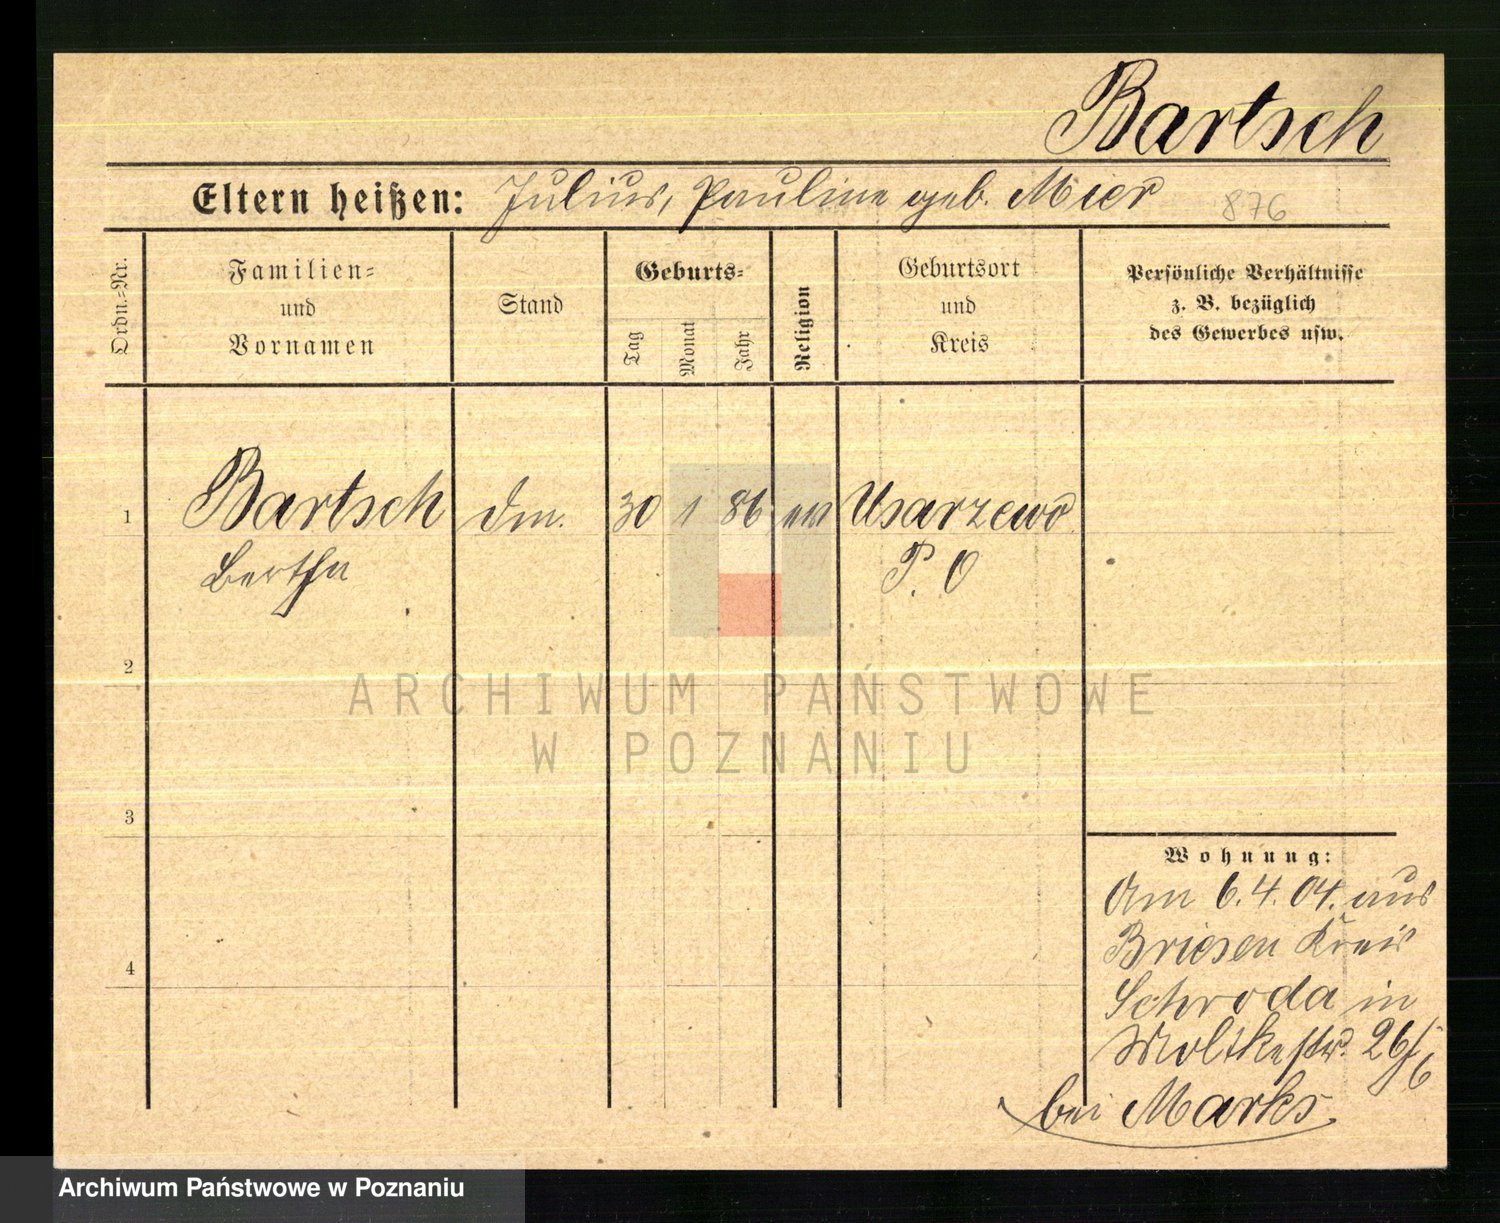 Bartsch
Eltern heißen: Julius, Pauline geb. Mier
876
Ordn.-Nr.
Familien-
und
Vornamen
Stand
Geburts-
Tag
Monat
Jahr
Religion
Geburtsort
und
Kreis
Persönliche Verhältnisse
z. B. bezüglich
des Gewerbes usw.
1 Bartsch 30 1 86 ev Usarzewo
Bertha P. O
2
3
4
ARCHIWUM PAŃSTWOWE
W POZNANIU
Wohnung:
Am 6.4.04. aus
Briesen Kreis
Schroda in
Moltkestr. 26/6
bei Marks
Archiwum Państwowe w Poznaniu